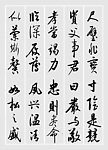 尺璧非寶寸陰是競
資父事君曰嚴與敬
孝當竭力忠則盡命
臨深履薄夙興溫凊
似蘭斯馨如松之盛